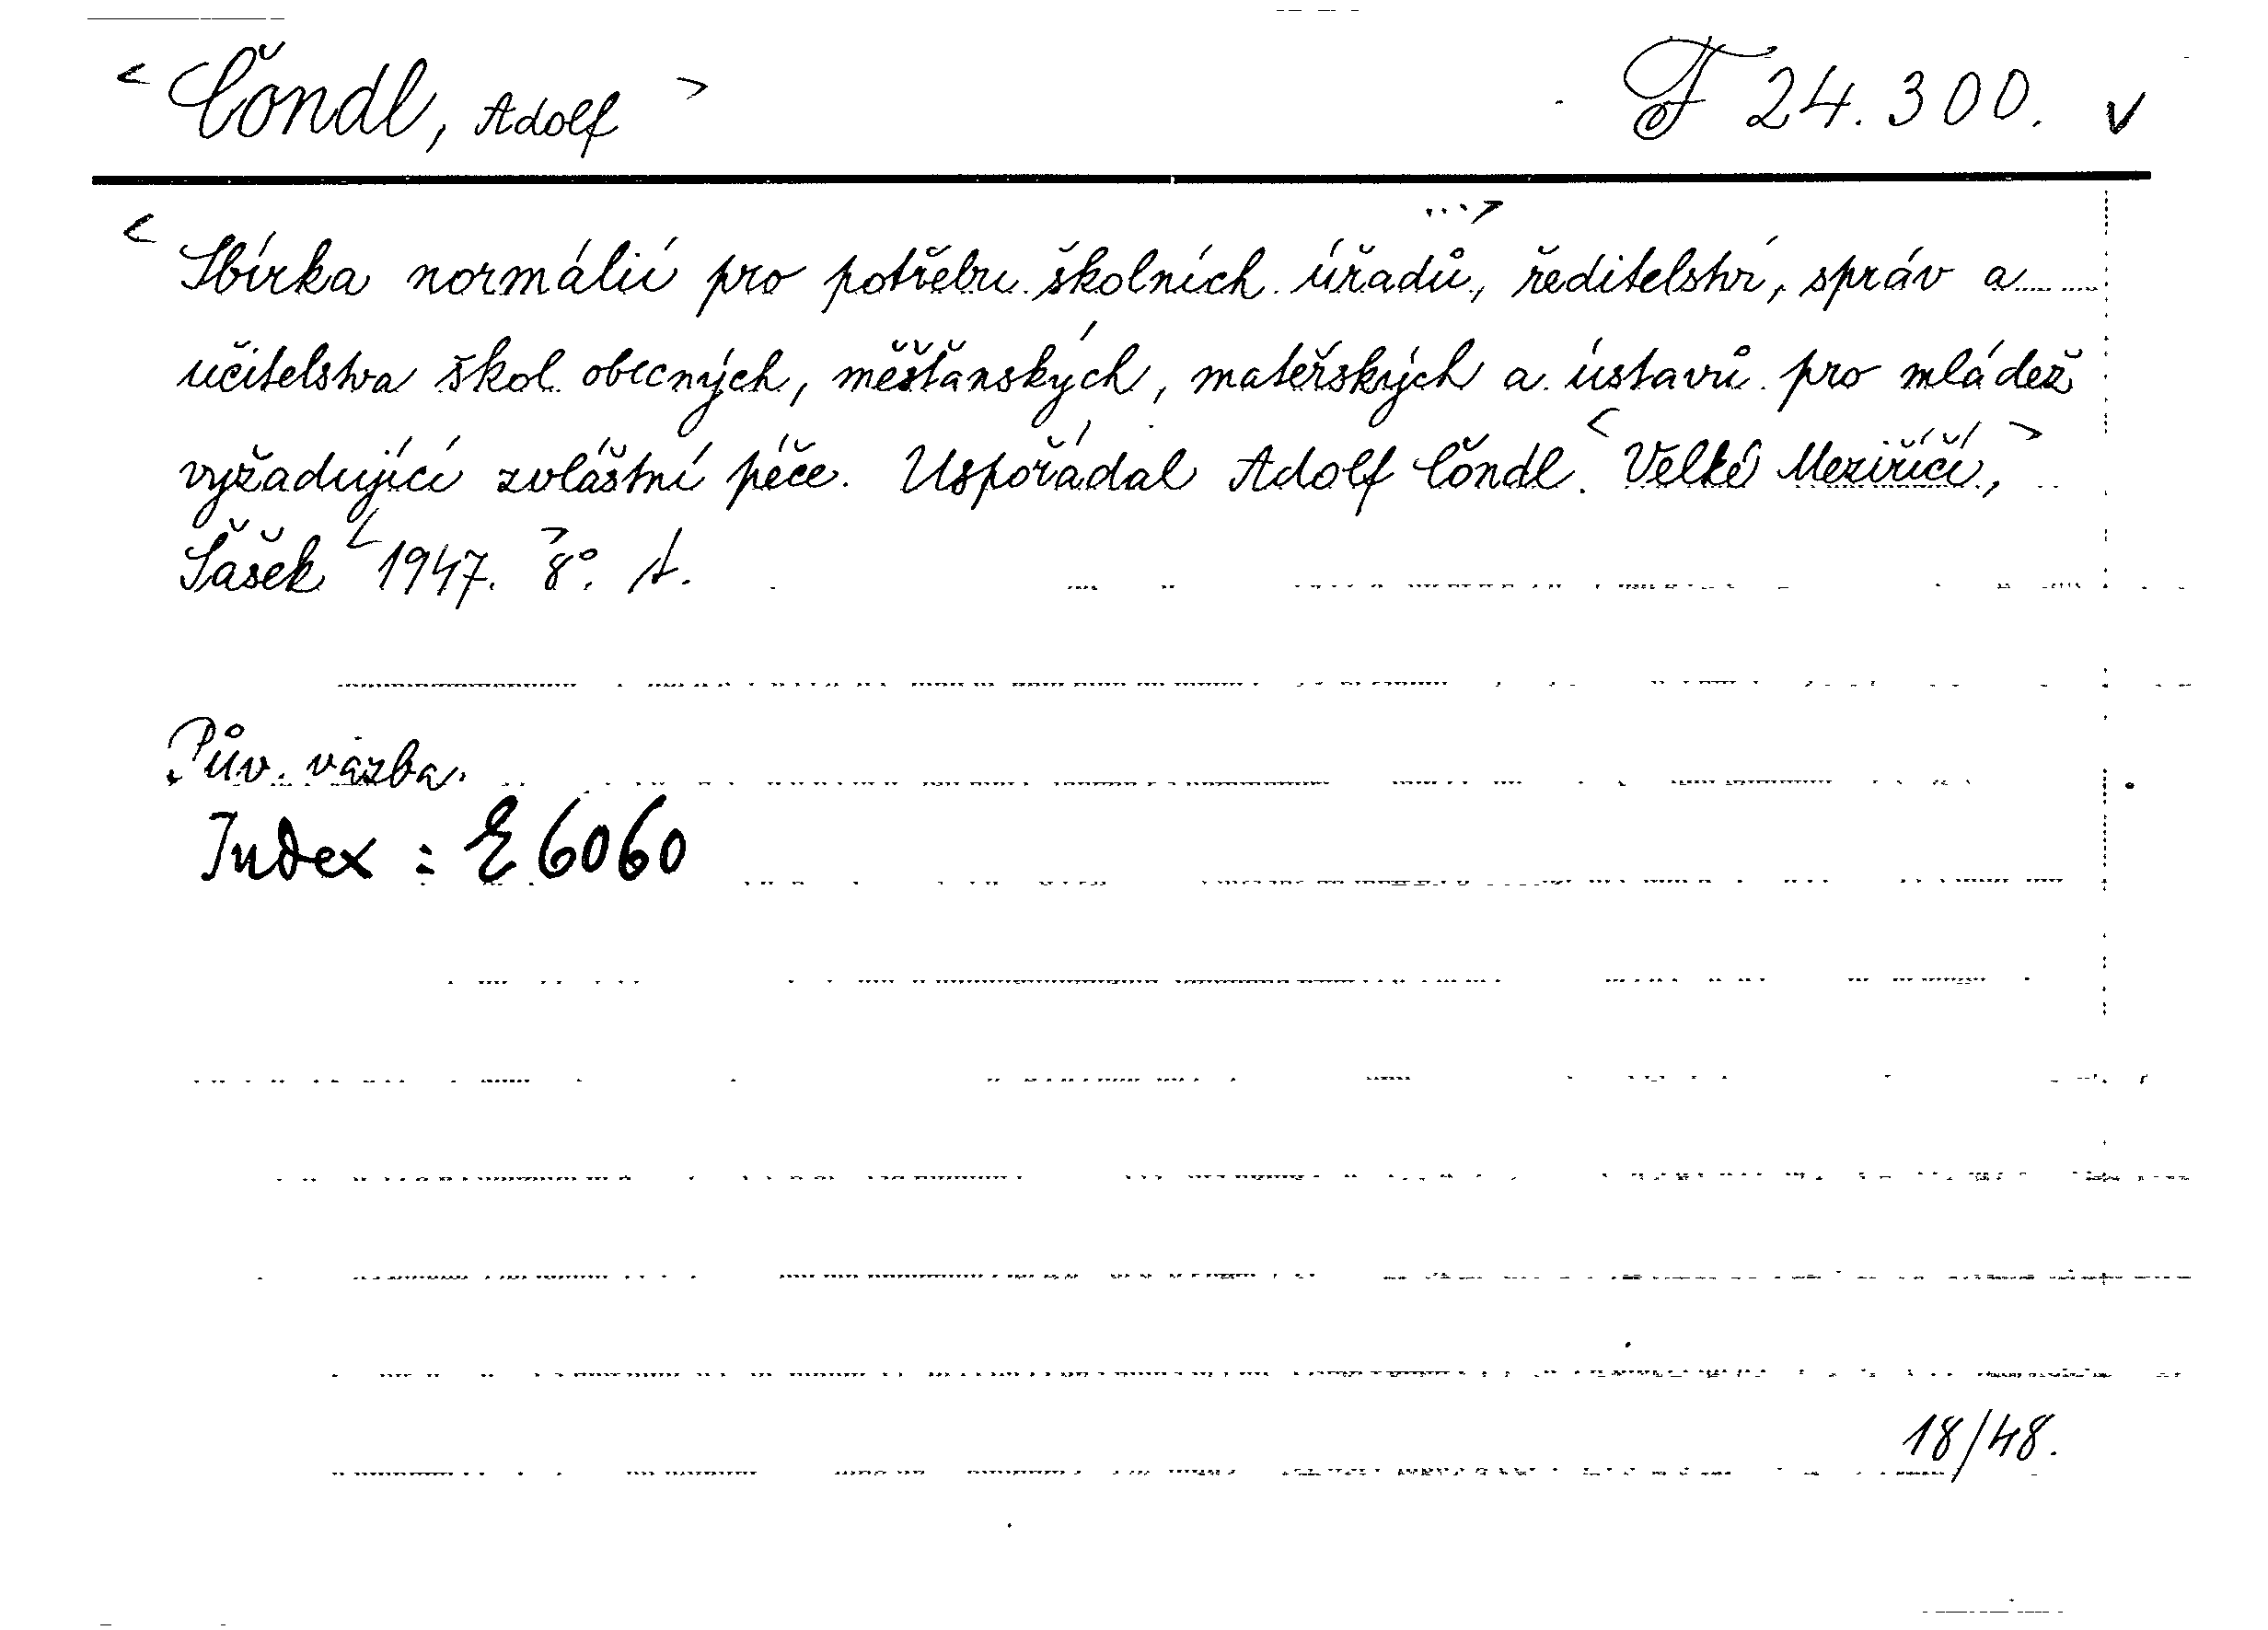 < Čondl, Adolf > F 24.300. v
< Sbírka normálií pro potřebu školních úřadů, ...> ředitelství, správ a
učitelstva škol obecných, měšťanských, mateřských a ústavů pro mládež
vyžadující zvláštní péče. Uspořádal Adolf Čondl. < Velké Meziříčí, >
Šašek < 1947. > 8°. A.
Pův. vazba.
Index : E 6060
18/48.